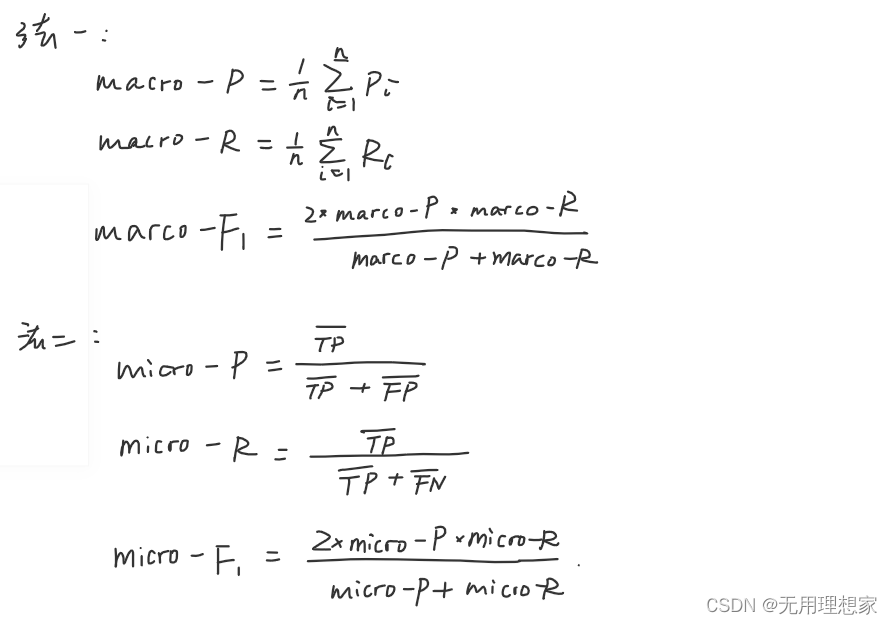 法一:
macro - P = 1/n ∑_{i=1}^{n} P_i
macro - R = 1/n ∑_{i=1}^{n} R_i
marco - F_1 = (2 * marco - P * marco - R) / (marco - P + marco - R)
法二:
micro - P = \overline{TP} / (\overline{TP} + \overline{FP})
micro - R = \overline{TP} / (\overline{TP} + \overline{FN})
micro - F_1 = (2 × micro - P × micro - R) / (micro - P + micro - R).
CSDN @无用理想家